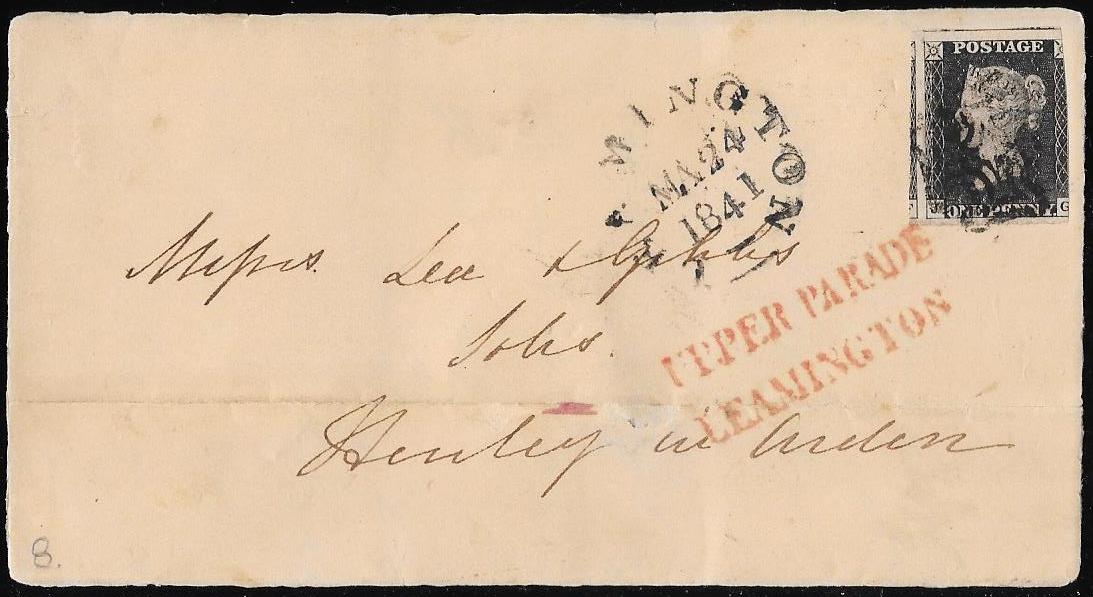 POSTAGE
F J ONE PENNY G
MINGTON
MA 24
1841
Messrs. Lea & Gibbs
Solrs.
UPPER PARADE
LEAMINGTON
Henley in Arden
8.